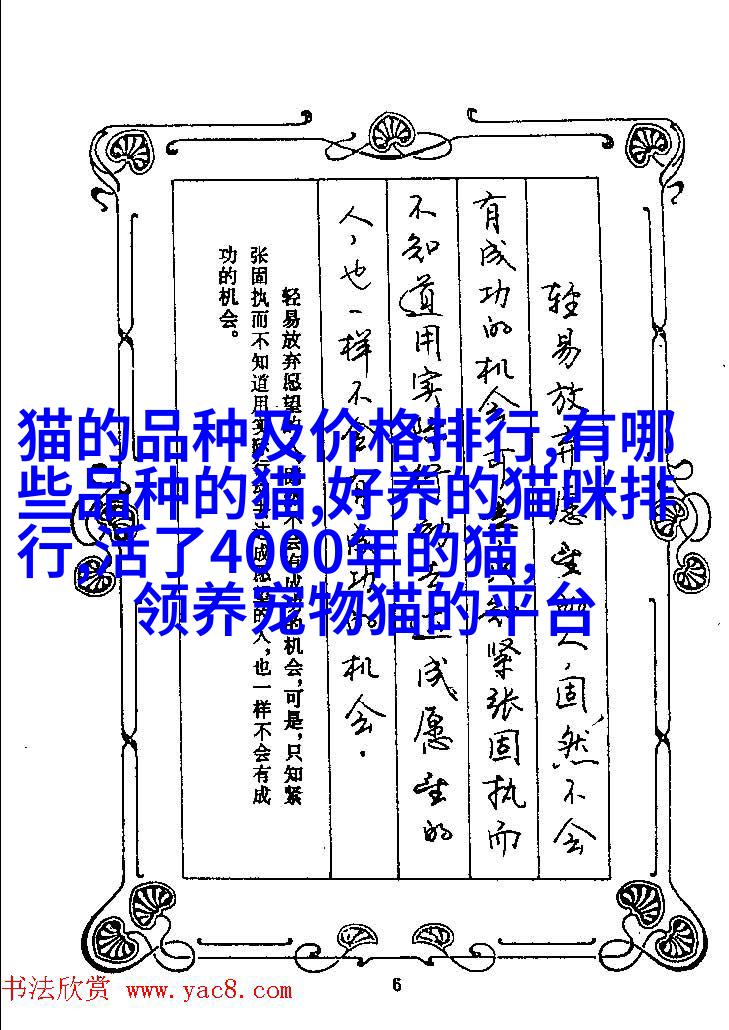 猫的品种及价格排行,有哪
些品种的猫,好养的猫咪排
行,活了4000年的猫,
领养宠物猫的平台
轻易放弃愿望的人,固然不会
有成功的机会,可是,只知紧张固执而
不知道用实际行动去达成愿望的
人,也一样不会有成功的机会.
轻易放弃愿望的人,固然不会有成功的机会,可是,只知紧
张固执而不知道用实际行动去达成愿望的人,也一样不会有成
功的机会。
6
书法欣赏 www.yac8.com